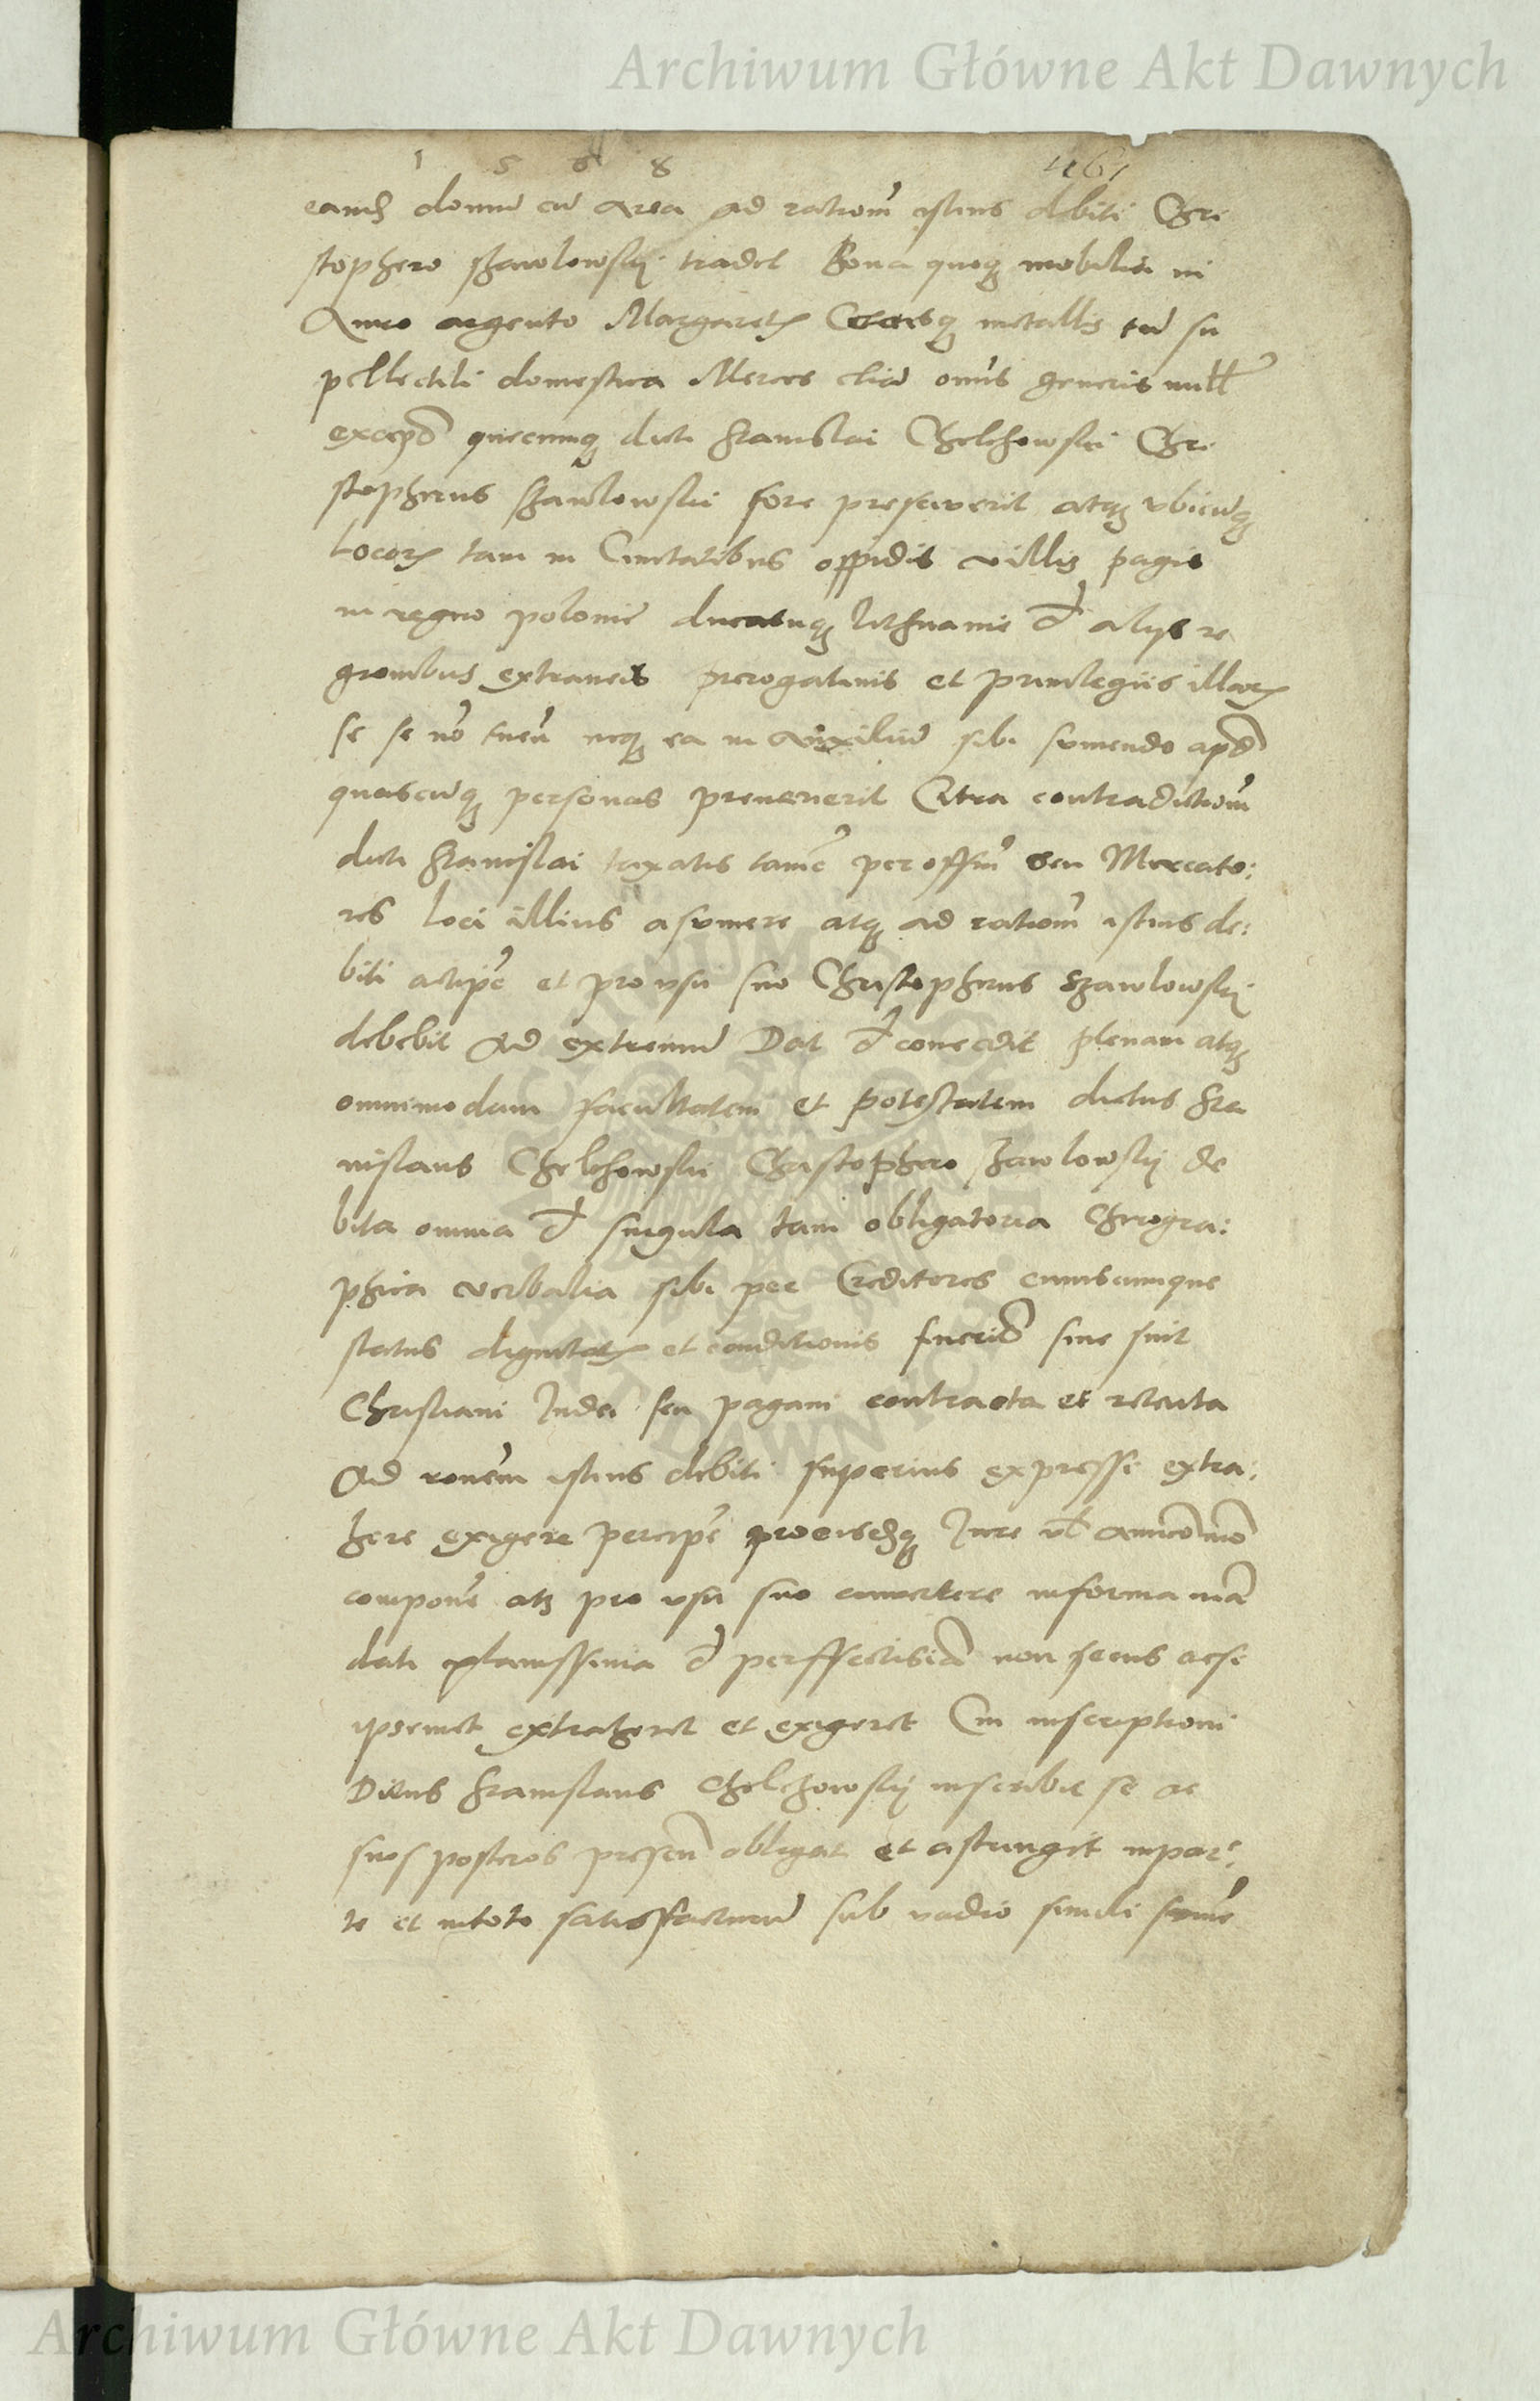 Archiwum Główne Akt Dawnych
1 5 6 8 461
domu cu area ad rationem istius debiti Chri
stophero szawlowskij tradet Bona quoq mobilia in
Auro argento Margaretis metallis su
pellectili domestica Merces etia omnis generis null
except quecunq dicti Stanislai Chelchowski Chri
stopherus Szawlowski fore presciverit atq ubicunq
locorum tam in Civitatibus oppidis villis pagis
in regno polonie ducatuq lithuanie et alijs re
gionibus extraneis prerogativis et privilegiis illarum
se se no neq ea in auxiliu sibi sumendo apud
quascunq personas prevenerit Citra contradictionem
dicti Stanislai taxatis tame per offm seu Mercato:
res loci illius asumere atq ad rationem istius de:
biti accipe et pro usu suo Christopherus Szawlowskij
debebit Ad extremu Dat et concedit plenam atq
omnimodam facultatem et potestatem dictus Sta
nislaus Chelchowski Christophero szawlowskij de
bita omnia et singula tam obligatoria Chirogra:
phica verbalia sibi per Creditores cuiuscunque
status dignitatis et conditionis fuerint sive sint
Christiani Judei seu pagani contracta et retenta
Ad ronem istius debiti superius expressi extra:
here exigere percipe proeisdq Jure vel amico mo
compone atq pro usu suo convertere in forma man
dati plenissima et perffectissima non secus acsi
ipsemet extraheret et exigeret Cui inscriptioni
Dictus Stanislaus Chelchowskij inscribit se ac
suos posteros presen obligat et astringit in par:
te et in toto satisfacturu sub vadio simili summe
Archiwum Główne Akt Dawnych